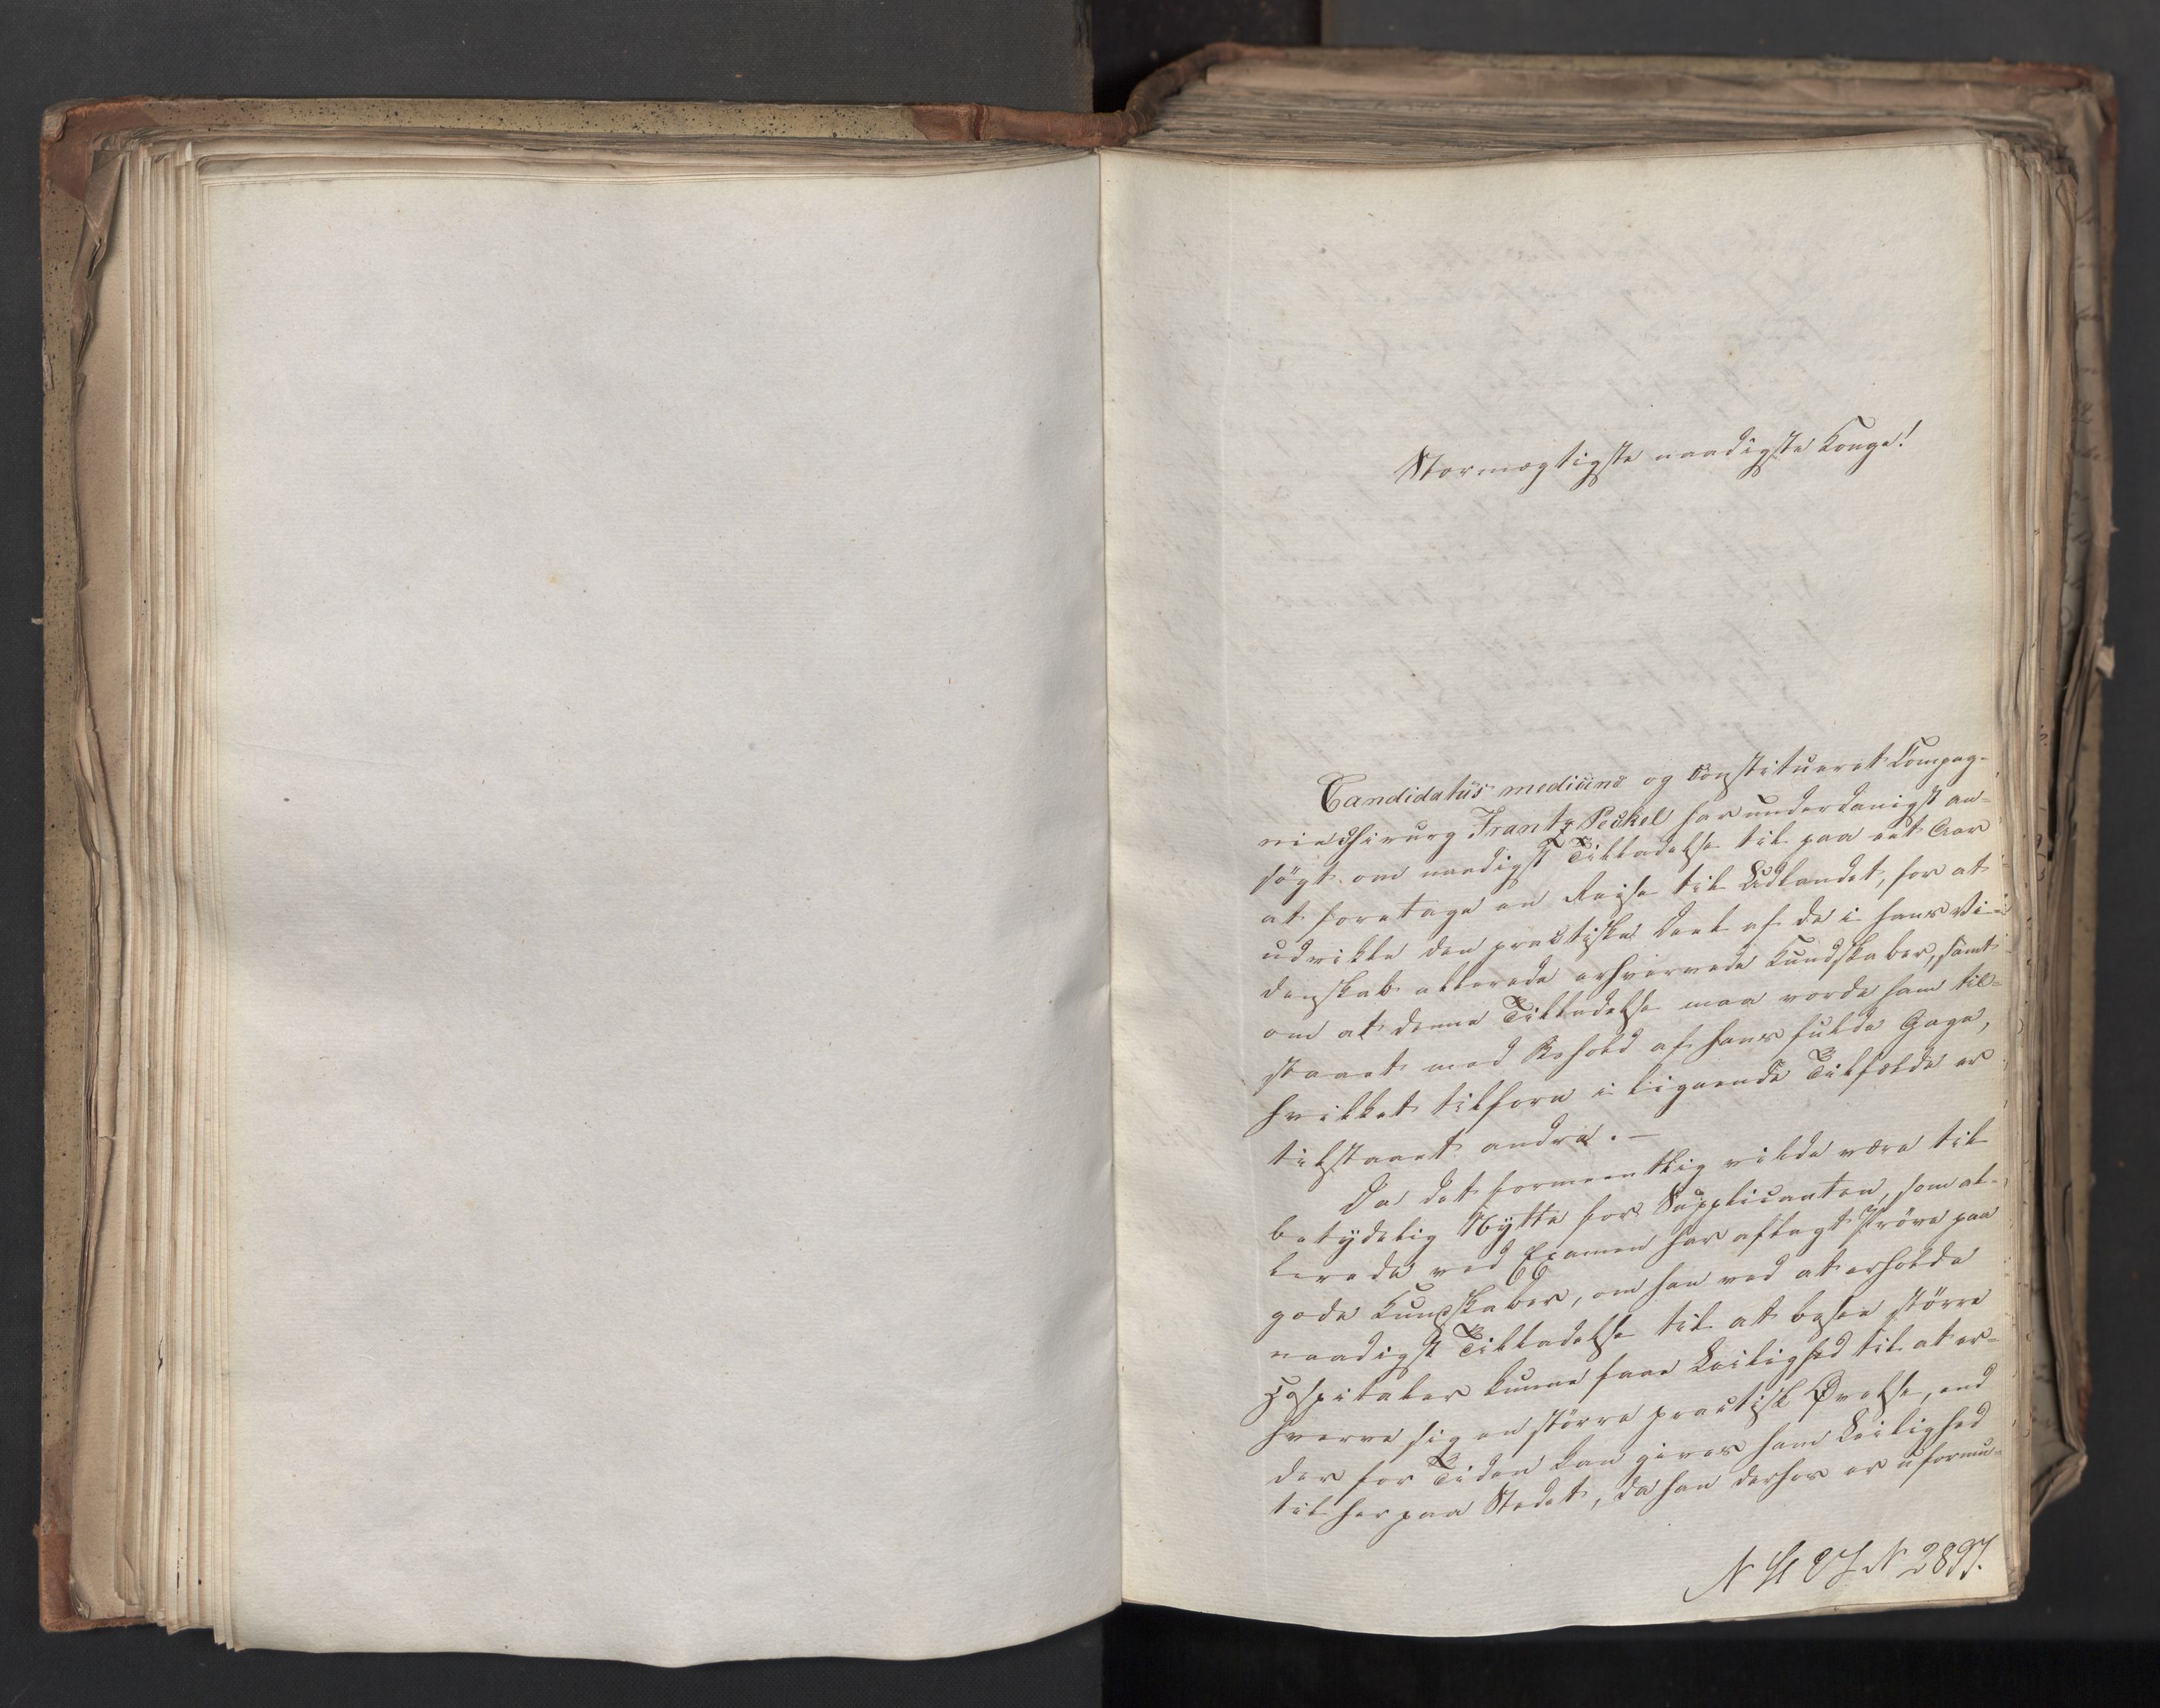 Stormægtigste naadigste Konge!
Candidatus medicinæ og constitueret Compag-
niechirurg Frantz Peckel har underdanigst an-
søgt om naadigst Tilladelse til paa eet Aar
at foretage en Reise til Udlandet, for at
udvikle den practiske Deel af de i hans Vi-
denskab allerede erhvervede Kundskaber, samt
om at denne Tilladelse maa vorde ham til-
staaet med Behold af hans fulde Gage,
hvilket tilforn i lignende Tilfælde er
tilstaaet andre. —
Da det formeentlig vilde være til
betydelig Nytte for Supplicanten, som al-
lerede ved Examen har aflagt Prøve paa
gode Kundskaber, om han ved at erholde
naadigst Tilladelse til at besee større
Hospitaler kunne faae Leilighed til at er-
hverve sig en større practisk Øvelse, end
der for Tiden kan gives ham Leilighed
til her paa Stedet, da han derhos er uformu-
2897.